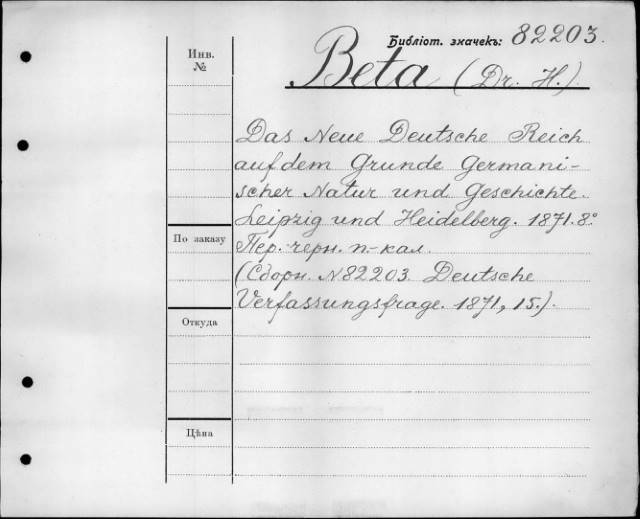 Библіот. значекъ: 82203.
Инв. №
Beta (Dr. H.)
Das Neue Deutsche Reich
auf dem Grunde Germani-
scher Natur und Geschichte.
Leipzig und Heidelberg. 1871. 8°
По заказу
Пер. черн. п-кал.
(Сборн. N 82203. Deutsche
Verfassungsfrage. 1871, 15.).
Откуда
Цѣна